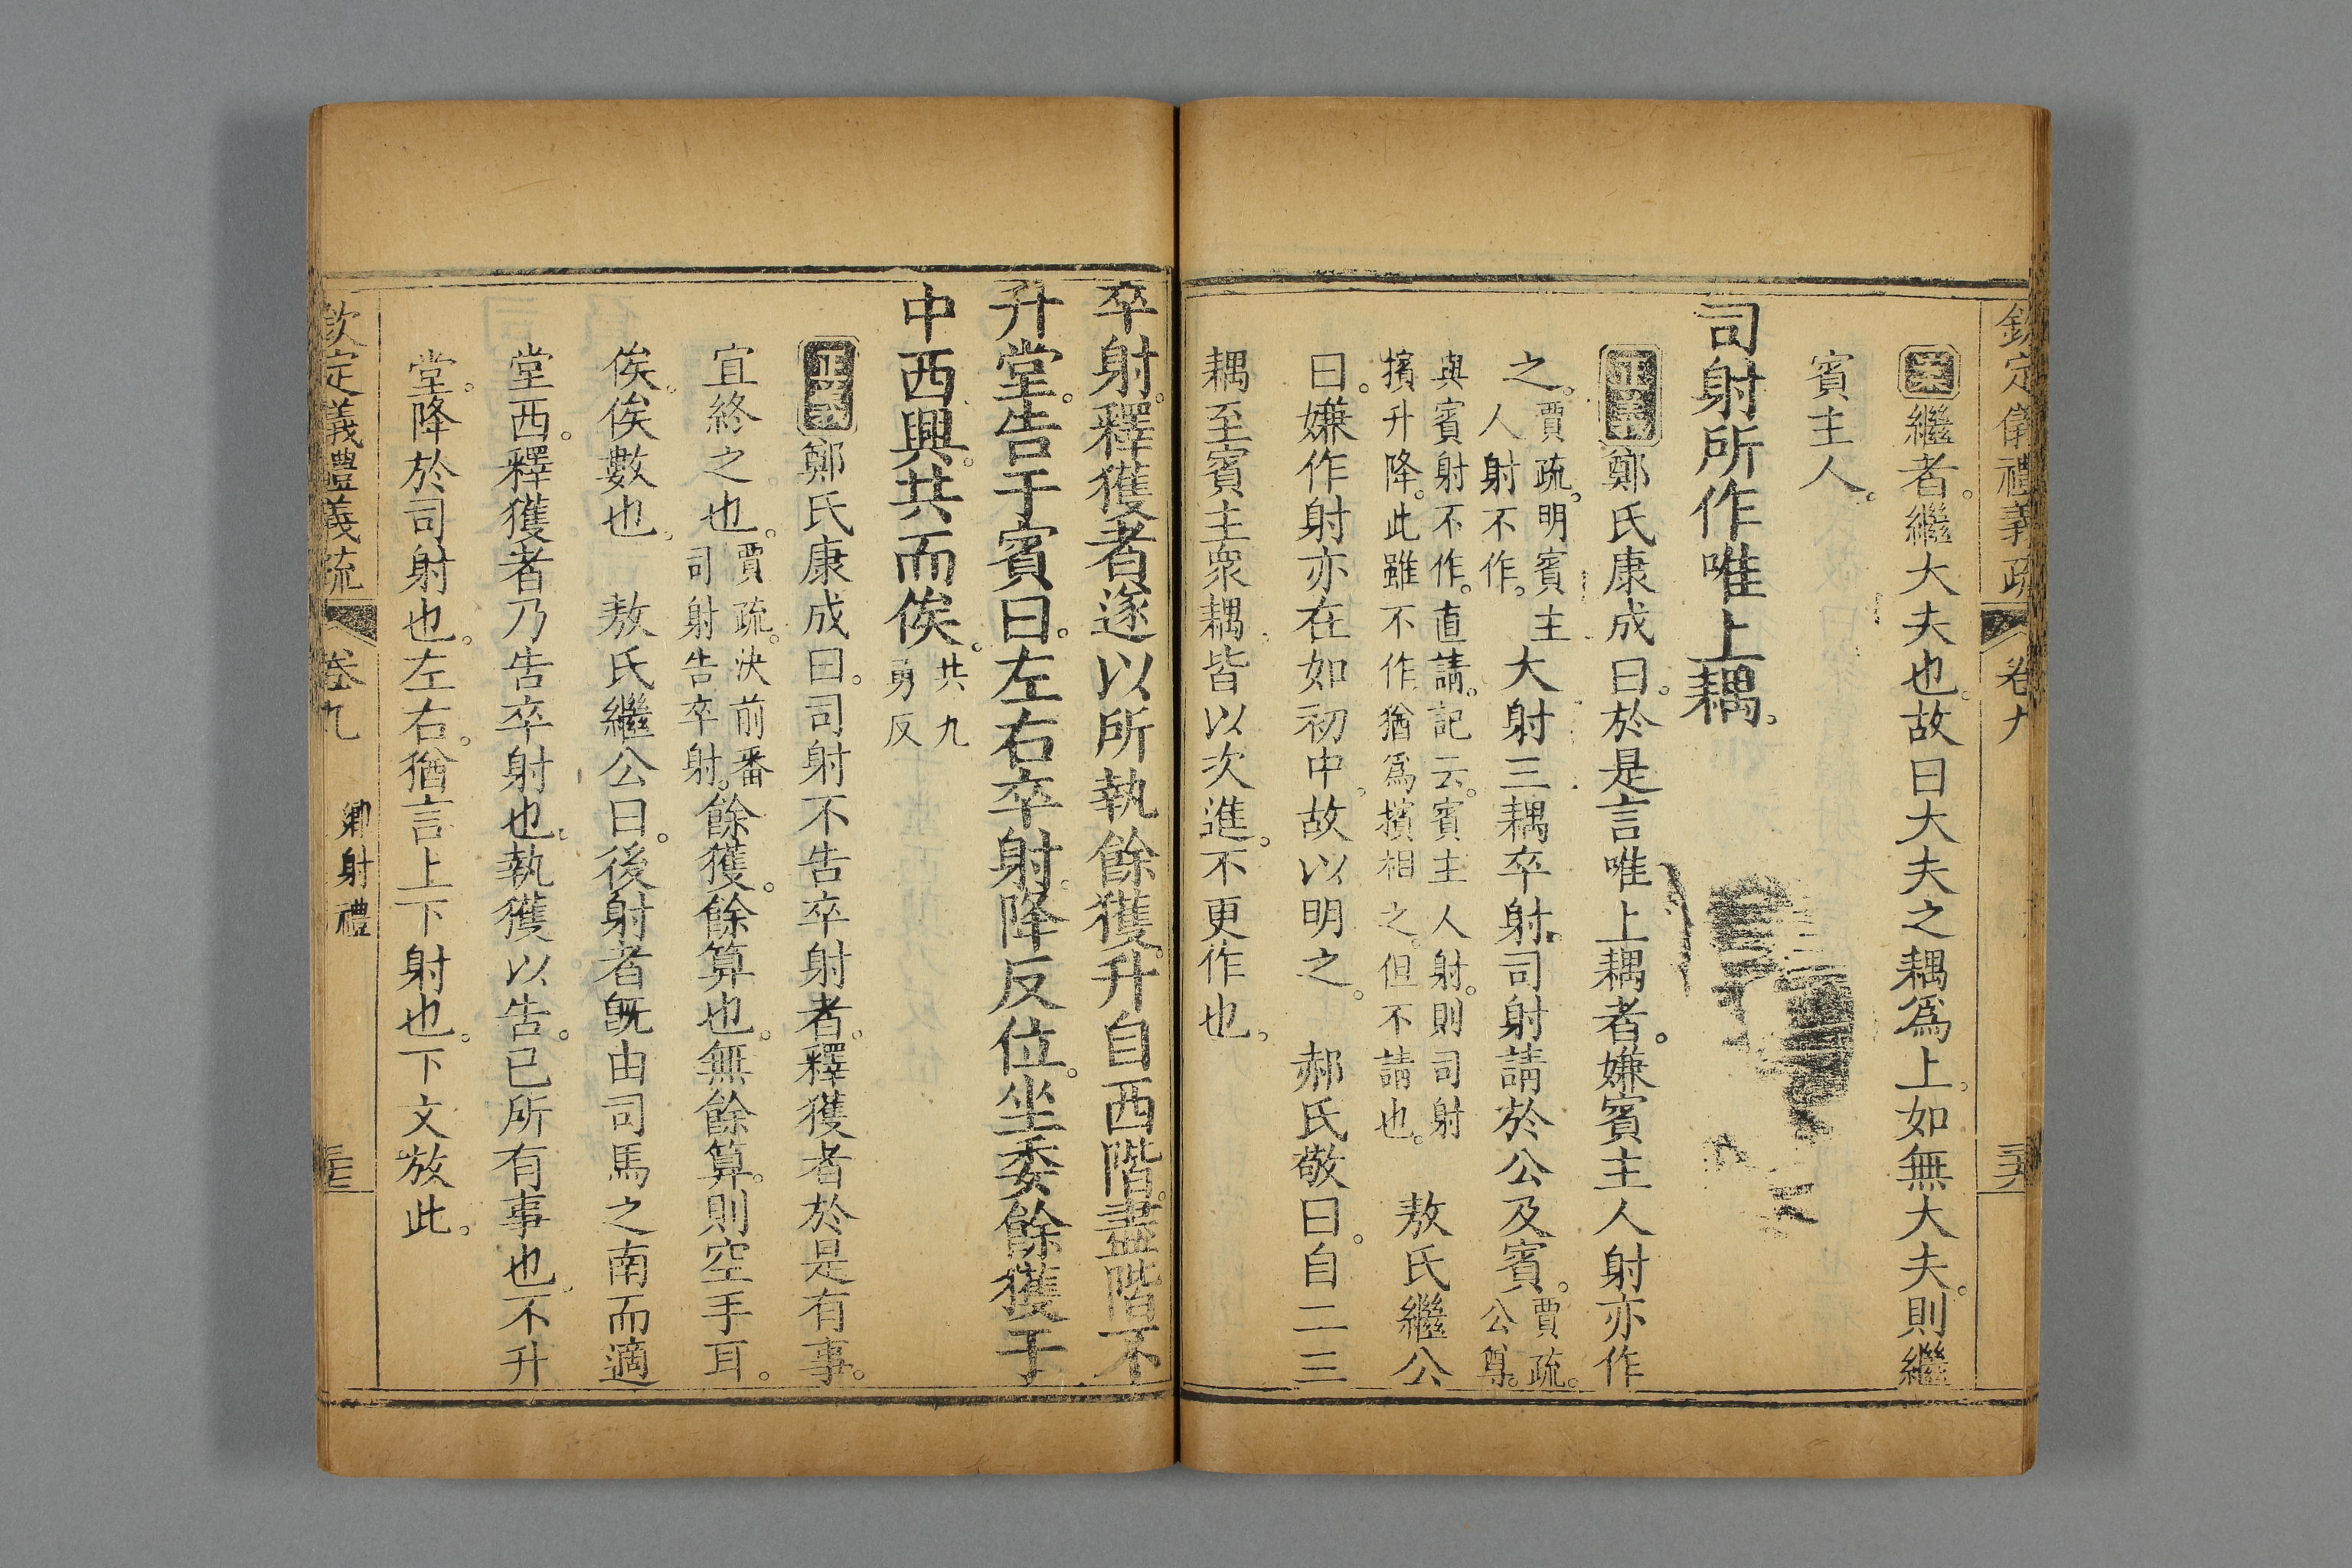 欽定儀禮義疏 卷九 三六
案繼者。繼大夫也。故曰大夫之耦爲上。如無大夫。則繼
賓主人。
司射所作唯上耦。
正義鄭氏康成曰。於是言唯上耦者。嫌賓主人射亦作
之。賈疏。明賓主人射不作。大射三耦卒射。司射請於公及賓。賈疏。公尊。
與賓射不作。直請。記云。賓主人射。則司射擯升降。此雖不作猶爲擯相之。但不請也。 敖氏繼公
曰。嫌作射亦在如初中。故以明之。 郝氏敬曰。自二三
耦至賓主衆耦。皆以次進。不更作也。
卒射。釋獲者遂以所執餘獲。升自西階。盡階不
升堂。告于賓曰。左右卒射。降反位。坐委餘獲于
中西。興。共而俟。共九勇反
正義鄭氏康成曰。司射不告卒射者。釋獲者於是有事。
宜終之也。賈疏。決前番司射告卒射。餘獲。餘算也。無餘算。則空手耳。
俟。俟數也。 敖氏繼公曰。後射者旣由司馬之南而適
堂西。釋獲者乃告卒射也。執獲以告。已所有事也。不升
堂。降於司射也。左右。猶言上下射也。下文放此。
欽定義禮義疏 卷九 鄉射禮 三七